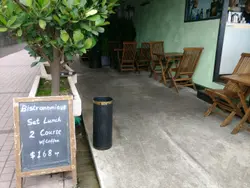 Bistronomique
Set Lunch
2 Course
w/Coffee
$168